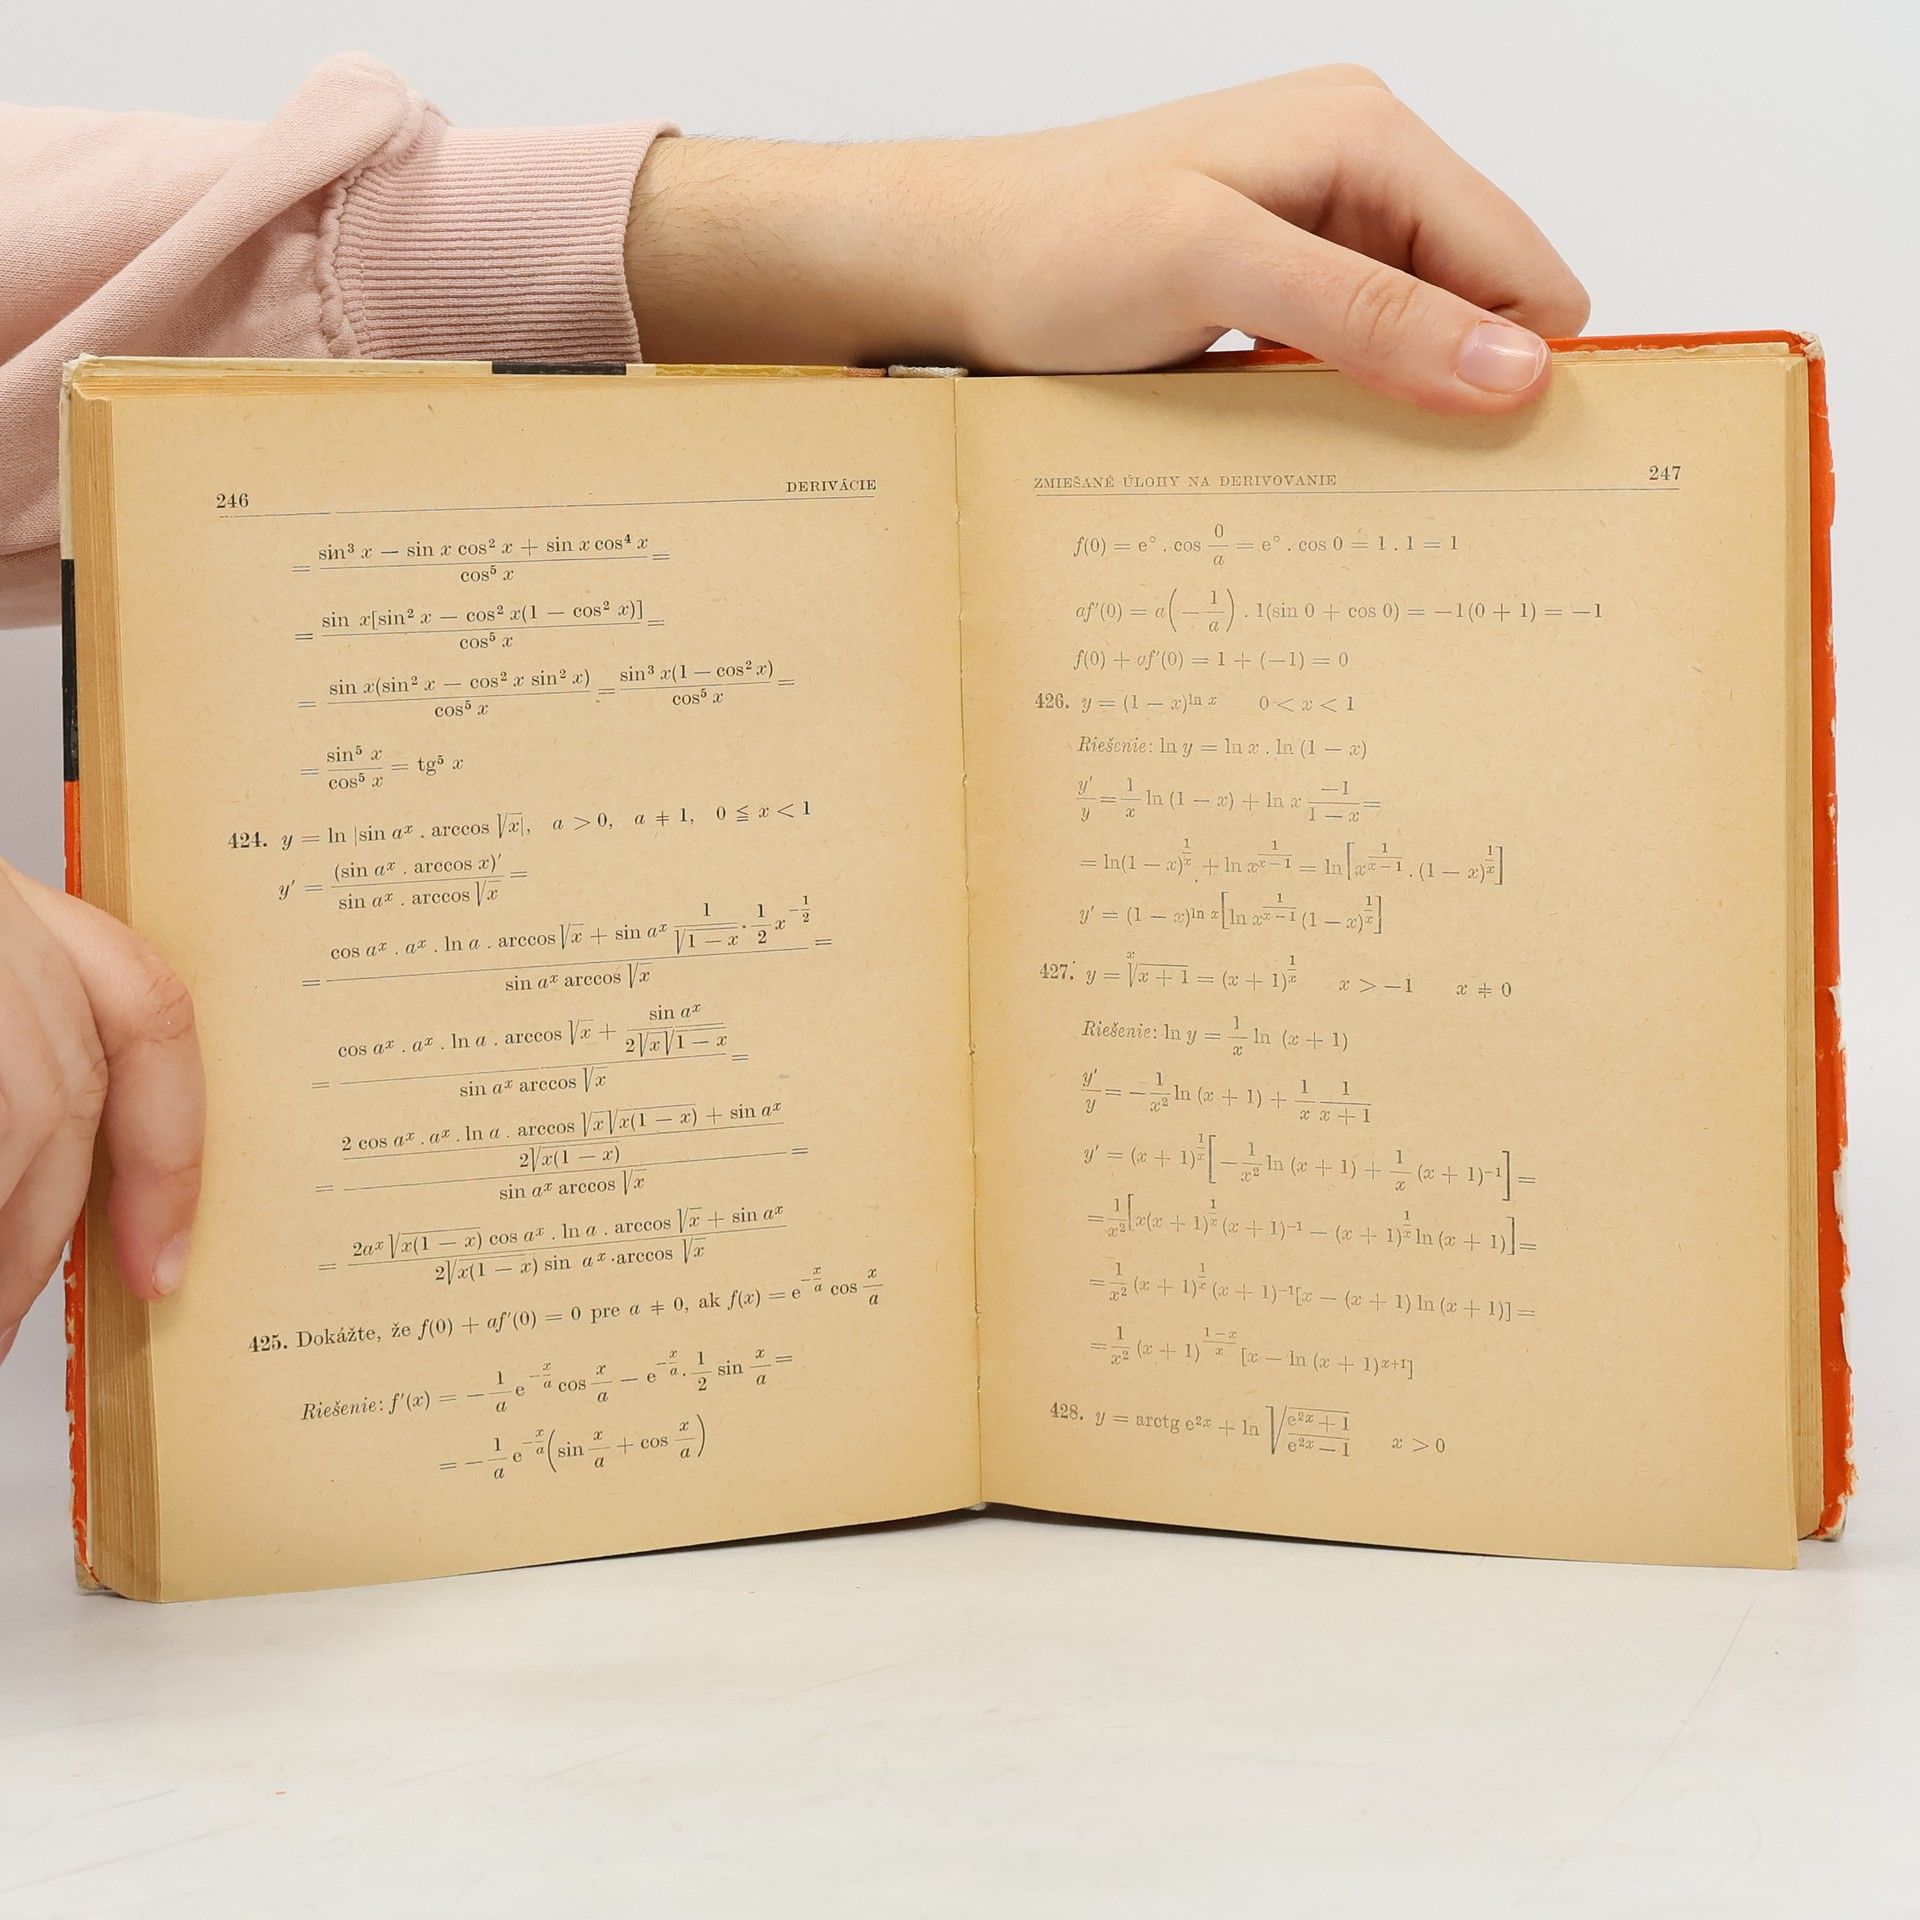 246 DERIVÁCIE
= (sin³ x − sin x cos² x + sin x cos⁴ x)/(cos⁵ x) =
= (sin x[sin² x − cos² x(1 − cos² x)])/(cos⁵ x) =
= (sin x(sin² x − cos² x sin² x))/(cos⁵ x) = (sin³ x(1 − cos² x))/(cos⁵ x) =
= (sin⁵ x)/(cos⁵ x) = tg⁵ x
424. y = ln |sin aˣ . arccos √x|, a > 0, a ≠ 1, 0 ≦ x < 1
y′ = ((sin aˣ . arccos x)′)/(sin aˣ . arccos √x) =
= (cos aˣ . aˣ . ln a . arccos √x + sin aˣ 1/√(1 − x) · 1/2 x^(−1/2))/(sin aˣ arccos √x) =
= (cos aˣ . aˣ . ln a . arccos √x + (sin aˣ)/(2√x√(1 − x)))/(sin aˣ arccos √x) =
= ((2 cos aˣ . aˣ . ln a . arccos √x√(x(1 − x)) + sin aˣ)/(2√(x(1 − x))))/(sin aˣ arccos √x) =
= (2aˣ √(x(1 − x)) cos aˣ . ln a . arccos √x + sin aˣ)/(2√(x(1 − x)) sin aˣ . arccos √x)
425. Dokážte, že f(0) + af′(0) = 0 pre a ≠ 0, ak f(x) = e^(−x/a) cos x/a
Riešenie: f′(x) = − 1/a e^(−x/a) cos x/a − e^(−x/a) · 1/2 sin x/a =
= − 1/a e^(−x/a) (sin x/a + cos x/a)
ZMIEŠANÉ ÚLOHY NA DERIVOVANIE 247
f(0) = e° . cos 0/a = e° . cos 0 = 1 . 1 = 1
af′(0) = a(− 1/a) . 1(sin 0 + cos 0) = −1(0 + 1) = −1
f(0) + af′(0) = 1 + (−1) = 0
426. y = (1 − x)^(ln x) 0 < x < 1
Riešenie: ln y = ln x . ln (1 − x)
y′/y = 1/x ln (1 − x) + ln x −1/(1 − x) =
= ln(1 − x)^(1/x) + ln x^(1/(x−1)) = ln[x^(1/(x−1)) . (1 − x)^(1/x)]
y′ = (1 − x)^(ln x) [ln x^(1/(x−1)) (1 − x)^(1/x)]
427. y = ˣ√(x + 1) = (x + 1)^(1/x) x > −1 x ≠ 0
Riešenie: ln y = 1/x ln (x + 1)
y′/y = − 1/x² ln (x + 1) + 1/x 1/(x + 1)
y′ = (x + 1)^(1/x) [− 1/x² ln (x + 1) + 1/x (x + 1)⁻¹] =
= 1/x² [x(x + 1)^(1/x) (x + 1)⁻¹ − (x + 1)^(1/x) ln (x + 1)] =
= 1/x² (x + 1)^(1/x) (x + 1)⁻¹[x − (x + 1) ln (x + 1)] =
= 1/x² (x + 1)^((1−x)/x) [x − ln (x + 1)^(x+1)]
428. y = arctg e²ˣ + ln √((e²ˣ + 1)/(e²ˣ − 1)) x > 0